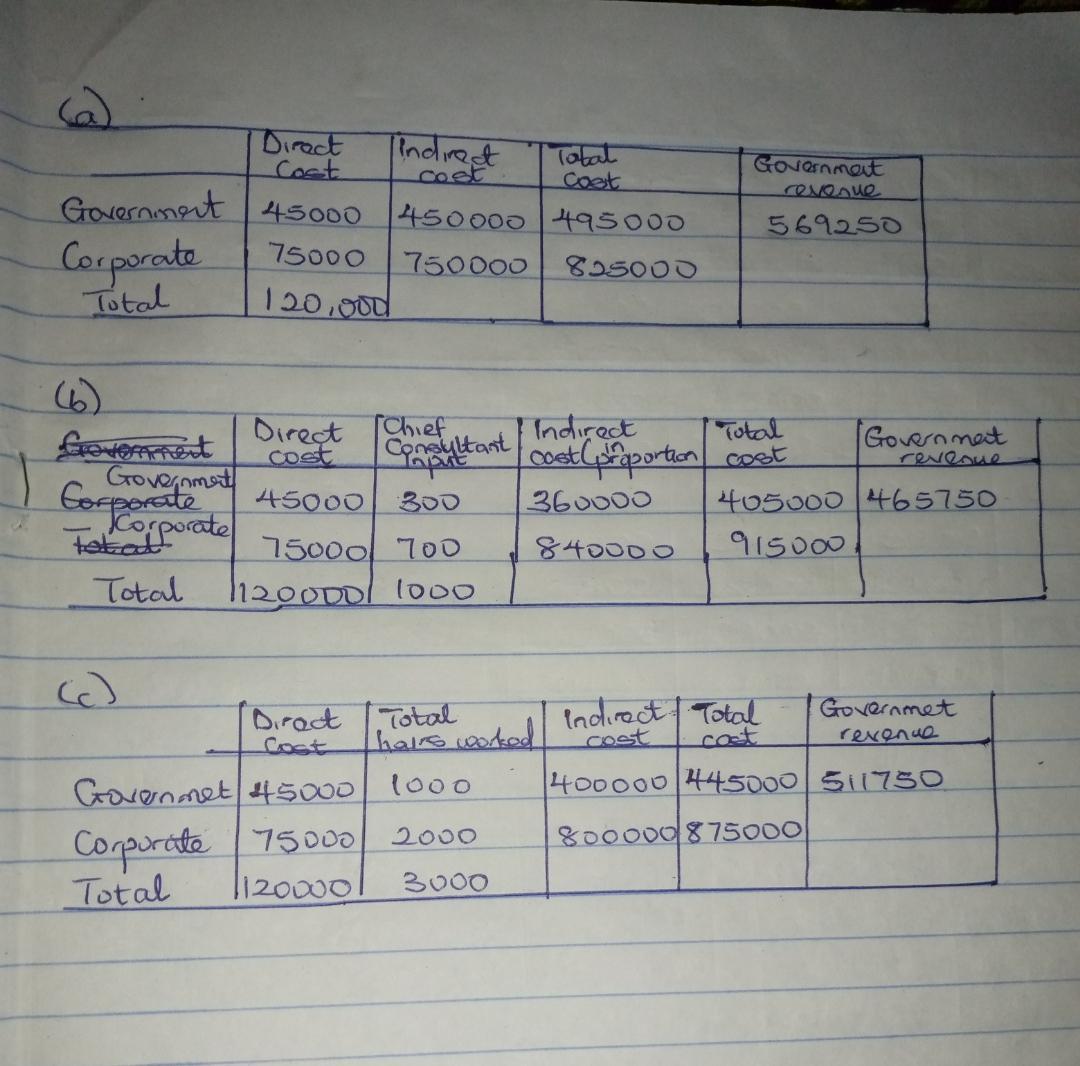 (a)
Direct Cost | Indirect cost | Total cost | Government revenue
Government | 45000 | 450000 | 495000 | 569250
Corporate | 75000 | 750000 | 825000
Total | 120,000
(b)
Government | Direct cost | Chief Consultant Input | Indirect cost (in proportion | Total cost | Government revenue
Corporate Government | 45000 | 300 | 360000 | 405000 | 465750
Total Corporate | 75000 | 700 | 840000 | 915000
Total | 120000 | 1000
(c)
Direct Cost | Total hairs worked | Indirect cost | Total cost | Governmet revenue
Govenmet | 45000 | 1000 | 400000 | 445000 | 511750
Corporate | 75000 | 2000 | 800000 | 875000
Total | 120000 | 3000